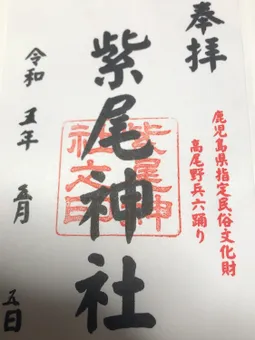 奉拝
鹿児島県指定民俗文化財
高尾野兵六踊り
紫尾神社
紫尾神社之印
令和五年 五月 五日